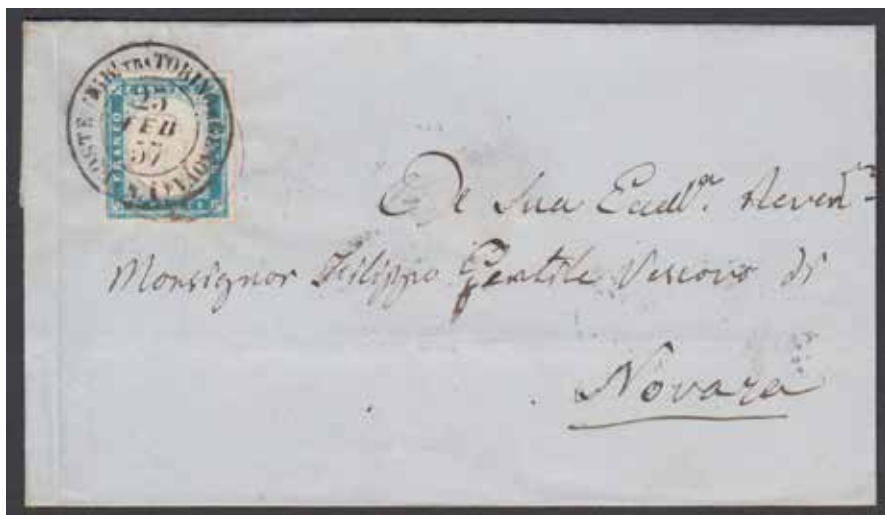 POSTE AMB. TRA TORINO E GENOVA
25
FEB
57
FRANCO
Sua Ecc. Reverma
Monsignor Filippo Gentile Vescovo di
Novara